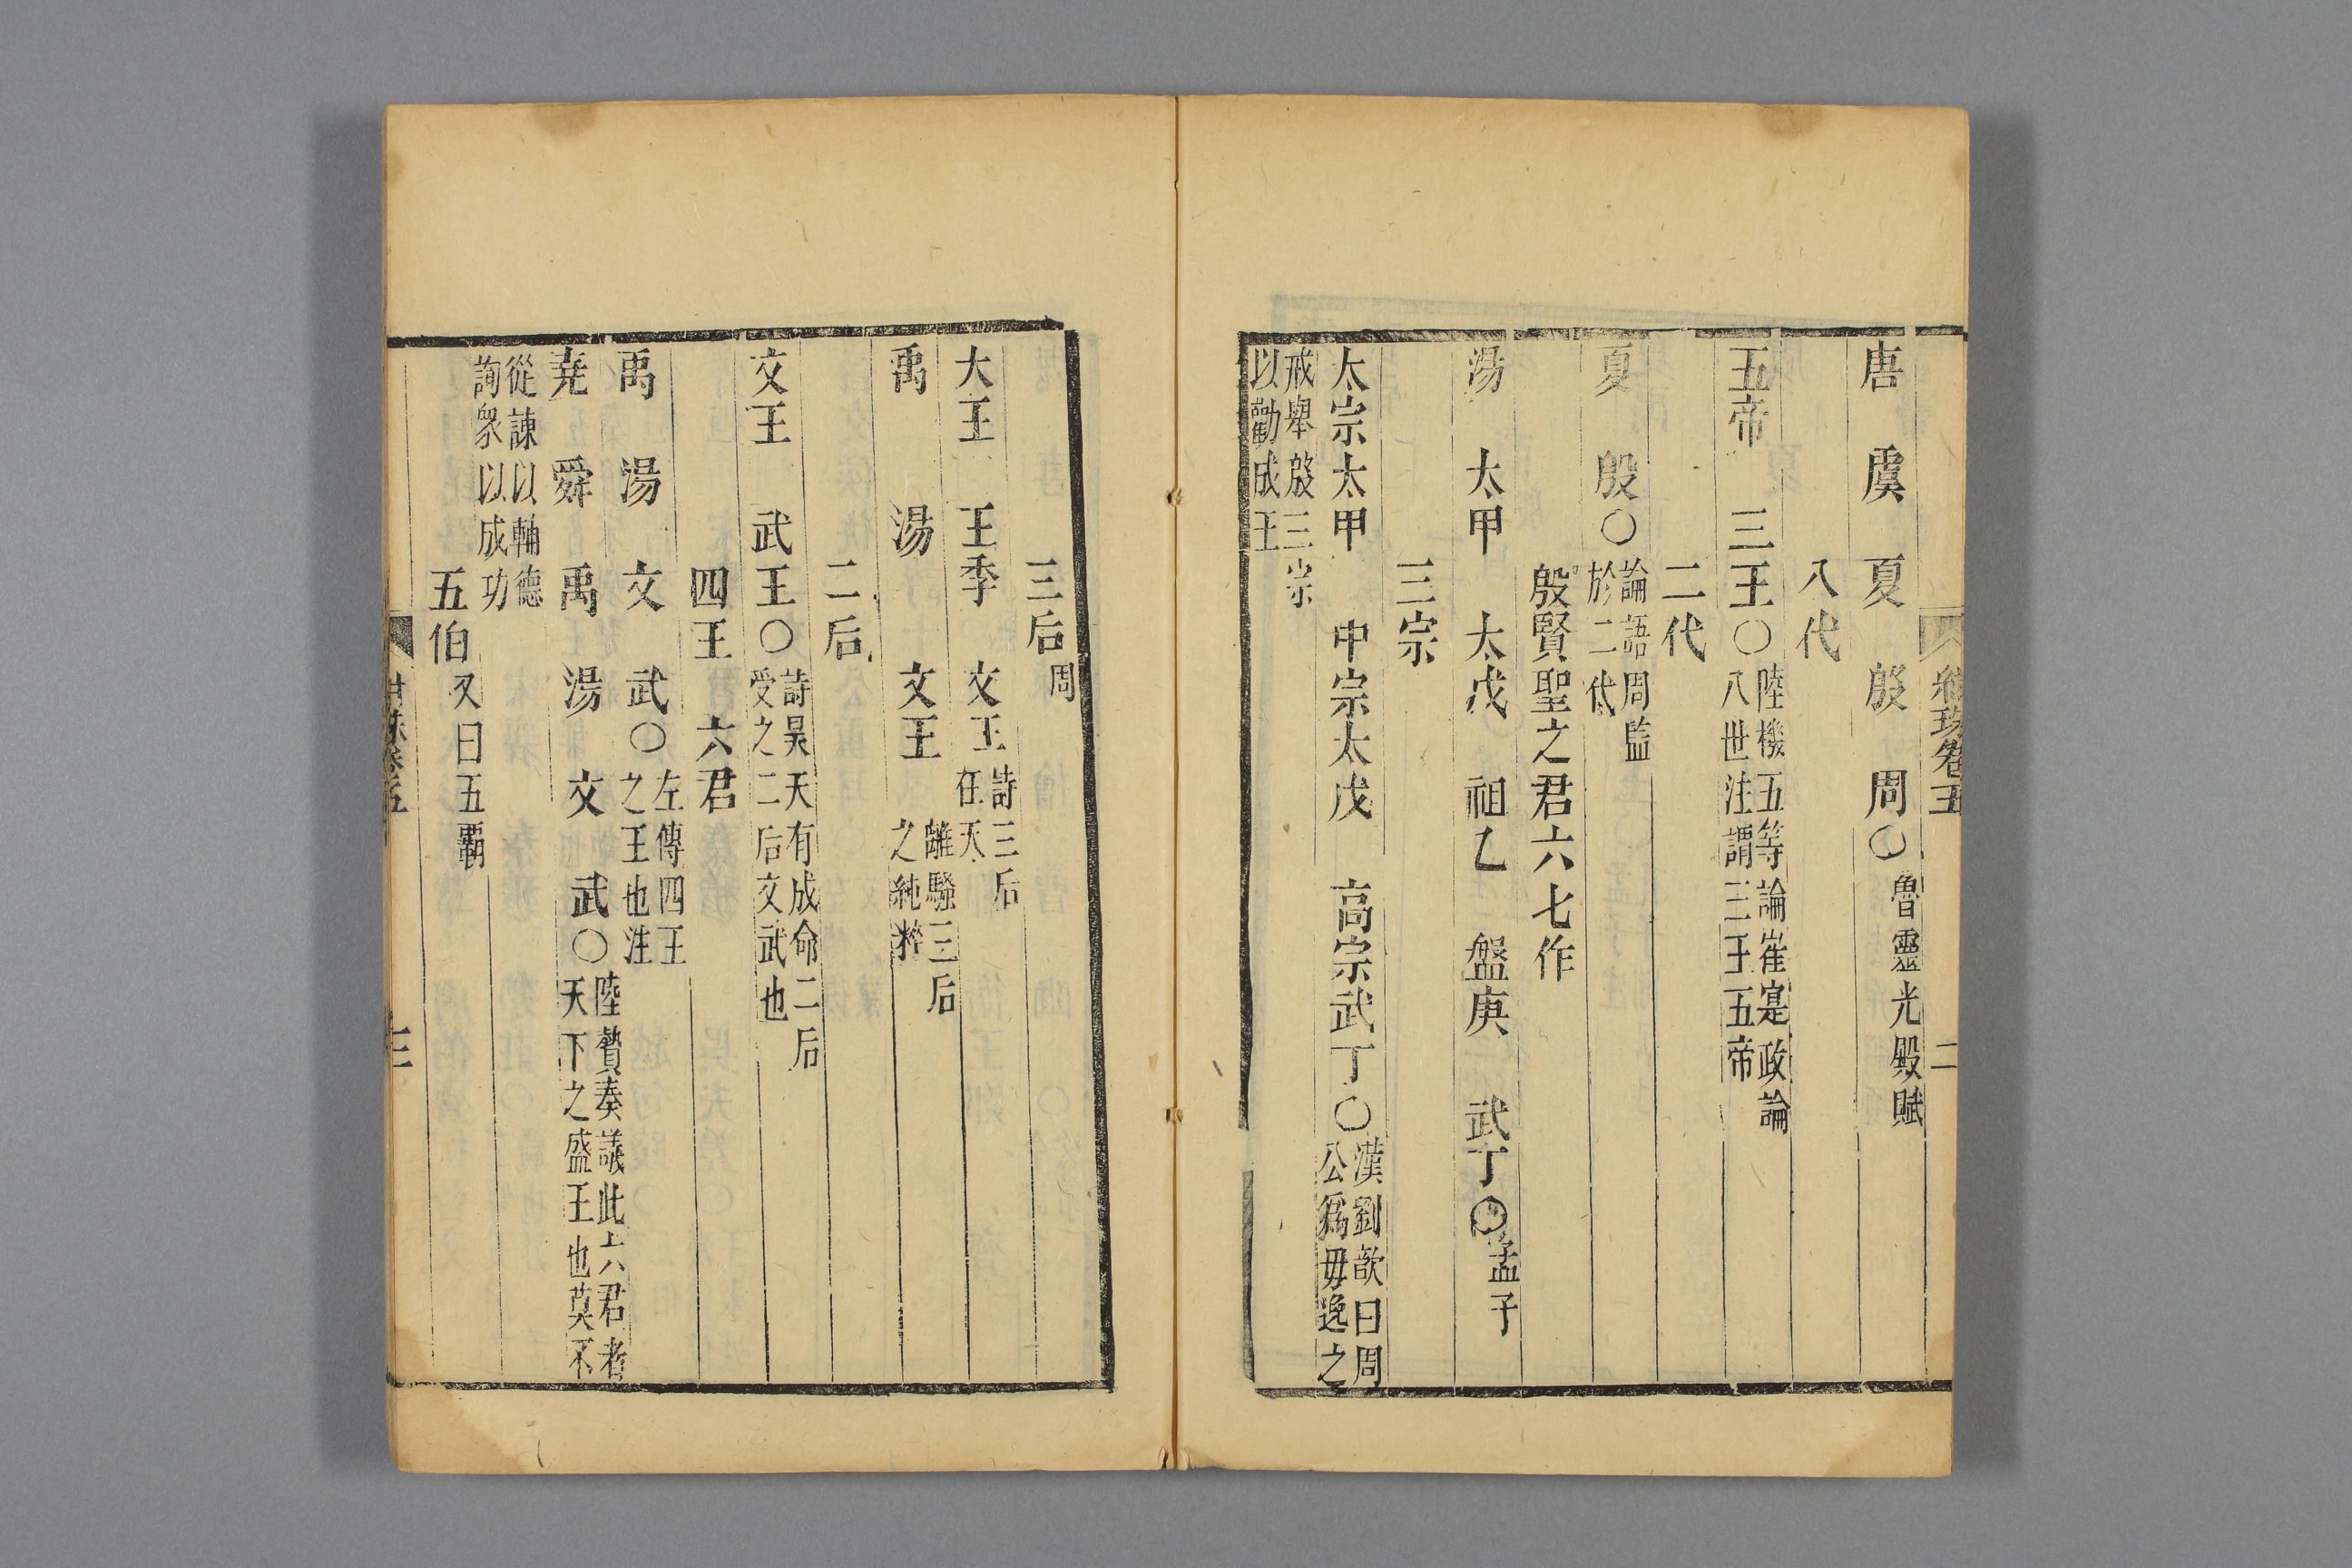 紺珠卷五 二
唐 虞 夏 殷 周〇魯靈光殿賦
八代
五帝 三王〇陸機五等論崔寔政論
八世注謂三王五帝
二代
夏 殷〇論語周監
於二代
殷賢聖之君六七作
湯 太甲 太戊 祖乙 盤庚 武丁〇孟子
三宗
太宗太甲 中宗太戊 高宗武丁〇漢劉歆曰周
公爲毋逸之
戒舉殷三宗
以勸成王
三后周
大王 王季 文王詩三后
在天
禹 湯 文王離騷三后
之純粹
二后
文王 武王〇詩昊天有成命二后
受之二后文武也
四王 六君
禹 湯 文 武〇左傳四王
之王也注
堯 舜 禹 湯 文 武〇陸贄奏議此六君者
天下之盛王也莫不
從諫以輔德
詢衆以成功
五伯又曰五覇
紺珠卷五 三